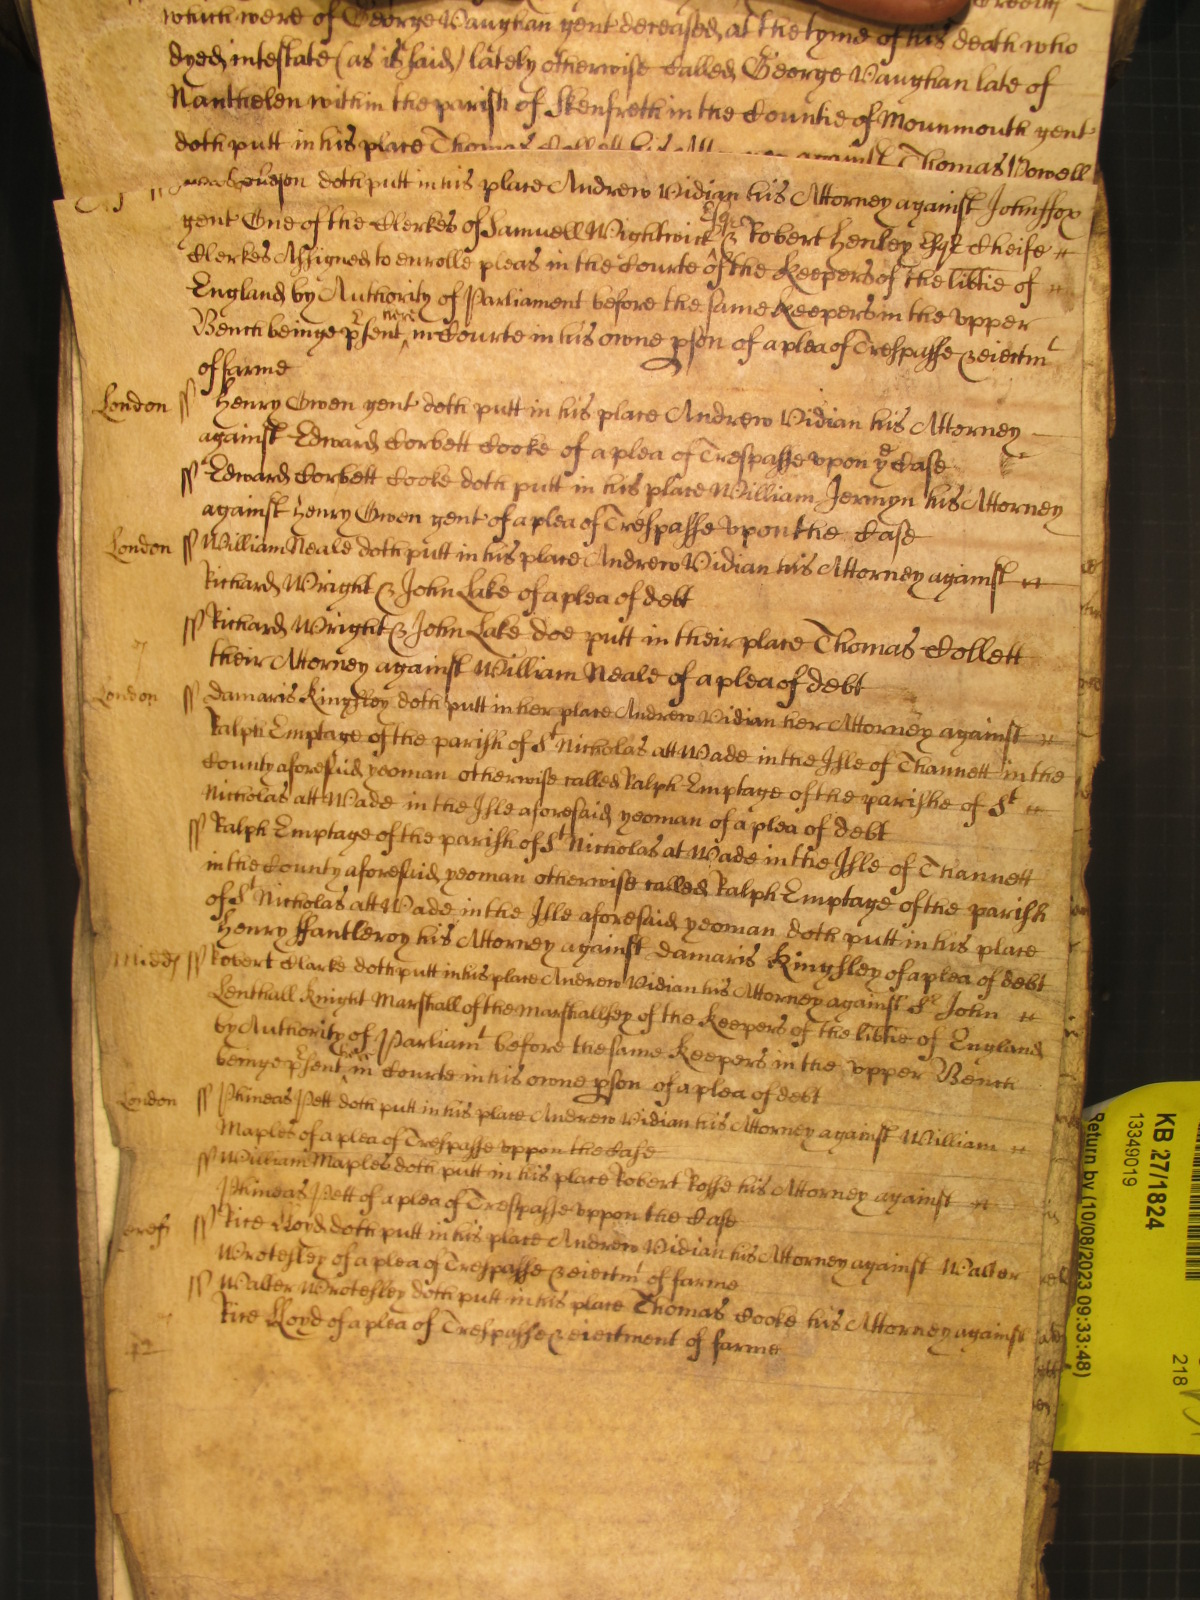 which were of George Vaughan gent deceased at the tyme of his death who
dyed intestate (as is said) lately otherwise Called George Vaughan late of
Nanthelen within the parish of Skenfreth in the Countie of Mounmouth gent
doth putt in his place Thomas Collett his Atto against Thomas Powell
doth putt in his place Andrew Vidian his Attorney against John ffox
gent One of the Clerkes of Samuell Wightwick Esqr & Robert Henley Esqr Cheife
Clerkes Assigned to enrolle pleas in the Courte of the Keepers of the libtie of
England by Authority of Parliament before the same Keepers in the vpper
Bench beinge psent here in Courte in his owne pson of a plea of Trespasse & eiectmt
of farme
London ss Henry Owen gent doth putt in his place Andrew Vidian his Attorney
against Edward Corbett Cooke of a plea of Trespasse vpon ye Case
ss Edward Corbett Cooke doth putt in his place William Jermyn his Attorney
against Henry Owen gent of a plea of Trespasse vpon the Case
London ss William Neale doth putt in his place Andrew Vidian his Attorney against
Richard Wright & John Lake of a plea of debt
ss Richard Wright & John Lake doe putt in their place Thomas Collett
their Attorney against William Neale of a plea of debt
London ss Damaris Kingsley doth putt in her place Andrew Vidian her Attorney against
Ralph Emptage of the parish of St Nicholas att Wade in the Isle of Thannett in the
County aforesaid yeoman otherwise called Ralph Emptage of the parishe of St
Nicholas att Wade in the Isle aforesaid yeoman of a plea of debt
ss Ralph Emptage of the parish of St Nicholas at Wade in the Isle of Thannett
in the County aforesaid yeoman otherwise called Ralph Emptage of the parish
of St Nicholas att Wade in the Isle aforesaid yeoman doth putt in his place
Henry ffantleroy his Attorney against Damaris Kingsley of a plea of debt
Midd ss Robert Clarke doth putt in his place Andrew Vidian his Attorney against Sr John
Lenthall Knight Marshall of the Marshallsey of the Keepers of the libtie of England
by Authority of Parliamt before the same Keepers in the vpper Bench
beinge psent here in Courte in his owne pson of a plea of debt
London ss Phineas Pett doth putt in his place Andrew Vidian his Attorney against William
Maples of a plea of Trespasse vppon the Case
ss William Maples doth putt in his place Robert Rosse his Attorney against
Phineas Pett of a plea of Trespasse vppon the Case
ss Rice Lloyd doth putt in his place Andrew Vidian his Attorney against Walter
Wrotesley of a plea of Trespasse & eiectmt of farme
ss Walter Wrotesley doth putt in his place Thomas Cooke his Attorney against
Rice Lloyd of a plea of Trespasse & eiectment of farme
KB 27/1824
13349019
Return by (10/08/2023 09:33:48)
218